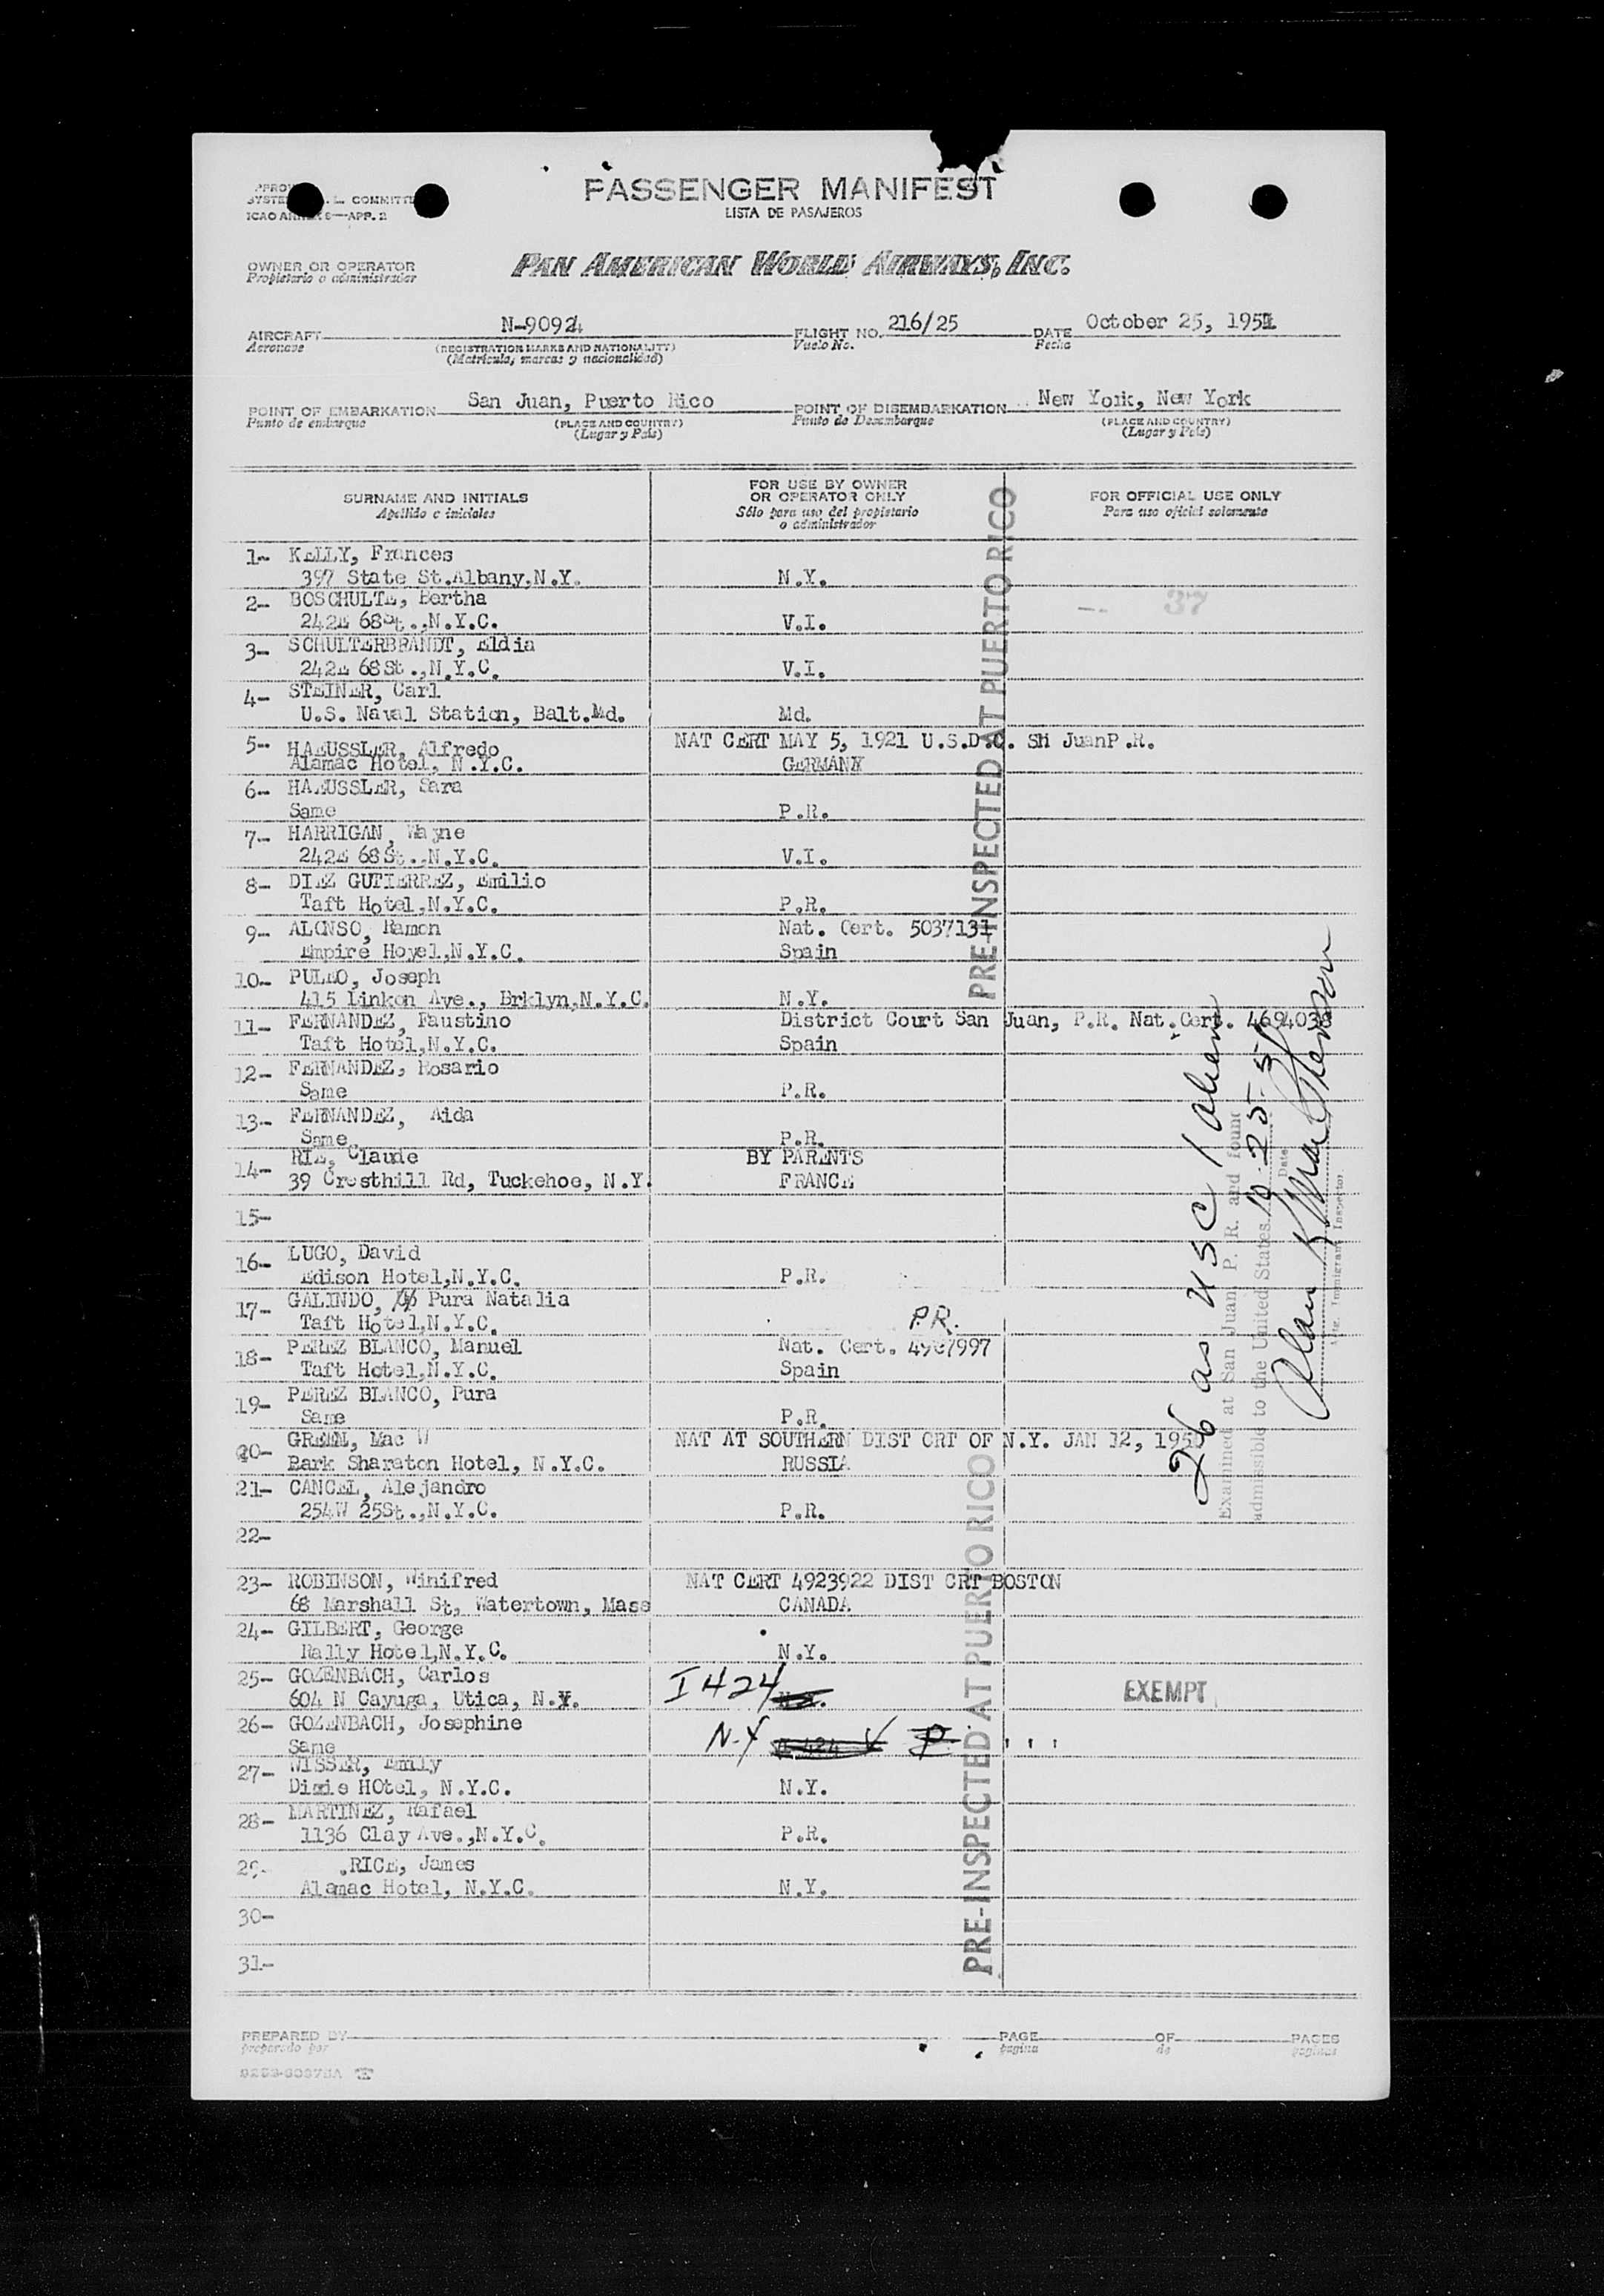 PASSENGER MANIFEST
LISTA DE PASAJEROS
COMMITT
ICAO ANNEX 9—APP. 2
OWNER OR OPERATOR
Propietario o administrador
PAN AMERICAN WORLD AIRWAYS, INC.
AIRCRAFT N-90924 FLIGHT NO. 216/25 DATE October 25, 1951
Aeronave (REGISTRATION MARKS AND NATIONALITY) Vuelo No. Fecha
(Matrícula, marcas y nacionalidad)
POINT OF EMBARKATION San Juan, Puerto Rico POINT OF DISEMBARKATION New York, New York
Punto de embarque (PLACE AND COUNTRY) Punto de Desembarque (PLACE AND COUNTRY)
(Lugar y País) (Lugar y País)
SURNAME AND INITIALS FOR USE BY OWNER OR OPERATOR ONLY FOR OFFICIAL USE ONLY
Apellido e iniciales Sólo para uso del propietario o administrador Para uso oficial solamente
1- KELLY, Frances
397 State St.Albany,N.Y. N.Y.
2- BOSCHULTE, Bertha 37
242E 68St.,N.Y.C. V.I.
3- SCHULTERBRANDT, Eldia
242E 68St.,N.Y.C. V.I.
4- STEINER, Carl
U.S. Naval Station, Balt.Md. Md.
5- HAEUSSLER, Alfredo NAT CERT MAY 5, 1921 U.S.D.C. SH JuanP.R.
Alamac Hotel, N.Y.C. GERMANY
6- HAEUSSLER, Sara
Same P.R.
7- HARRIGAN, Wayne
242E 68St.,N.Y.C. V.I.
8- DIEZ GUTIERREZ, Emilio
Taft Hotel,N.Y.C. P.R.
9- ALONSO, Ramon Nat. Cert. 5037131
Empire Hoyel,N.Y.C. Spain
10- PULEO, Joseph
415 Linken Ave., Brklyn,N.Y.C. N.Y.
11- FERNANDEZ, Faustino District Court San Juan, P.R. Nat.Cert. 4694038
Taft Hotel,N.Y.C. Spain
12- FERNANDEZ, Rosario
Same P.R.
13- FERNANDEZ, Aida
Same P.R.
14- RIE, Claude BY PARENTS
39 Cresthill Rd, Tuckehoe, N.Y. FRANCE
15-
16- LUGO, David
Edison Hotel,N.Y.C. P.R.
17- GALINDO, Pura Natalia
Taft Hotel,N.Y.C. P.R.
18- PEREZ BLANCO, Manuel Nat. Cert. 4967997
Taft Hotel,N.Y.C. Spain
19- PEREZ BLANCO, Pura
Same P.R.
20- GREEN, Mac W NAT AT SOUTHERN DIST CRT OF N.Y. JAN 12, 1950
Park Sharaton Hotel, N.Y.C. RUSSIA
21- CANCEL, Alejandro
254W 25St.,N.Y.C. P.R.
22-
23- ROBINSON, Winifred NAT CERT 4923922 DIST CRT BOSTON
68 Marshall St, Watertown, Mass CANADA
24- GILBERT, George
Rally Hotel,N.Y.C. N.Y.
25- GOZENBACH, Carlos
604 N Cayuga, Utica, N.Y. I 424 EXEMPT
26- GOZENBACH, Josephine
Same N.Y
27- WISSER, Emily
Dixie HOtel, N.Y.C. N.Y.
28- MARTINEZ, Rafael
1136 Clay Ave.,N.Y.C. P.R.
29- RICE, James
Alamac Hotel, N.Y.C. N.Y.
30-
31-
PRE-INSPECTED AT PUERTO RICO
PRE-INSPECTED AT PUERTO RICO
26 as USC 1 alien
Examined at San Juan, P. R. and found
admissible to the United States 10-25-51
Date
Immigrant Inspector
PREPARED BY PAGE OF PAGES
preparado por página de páginas